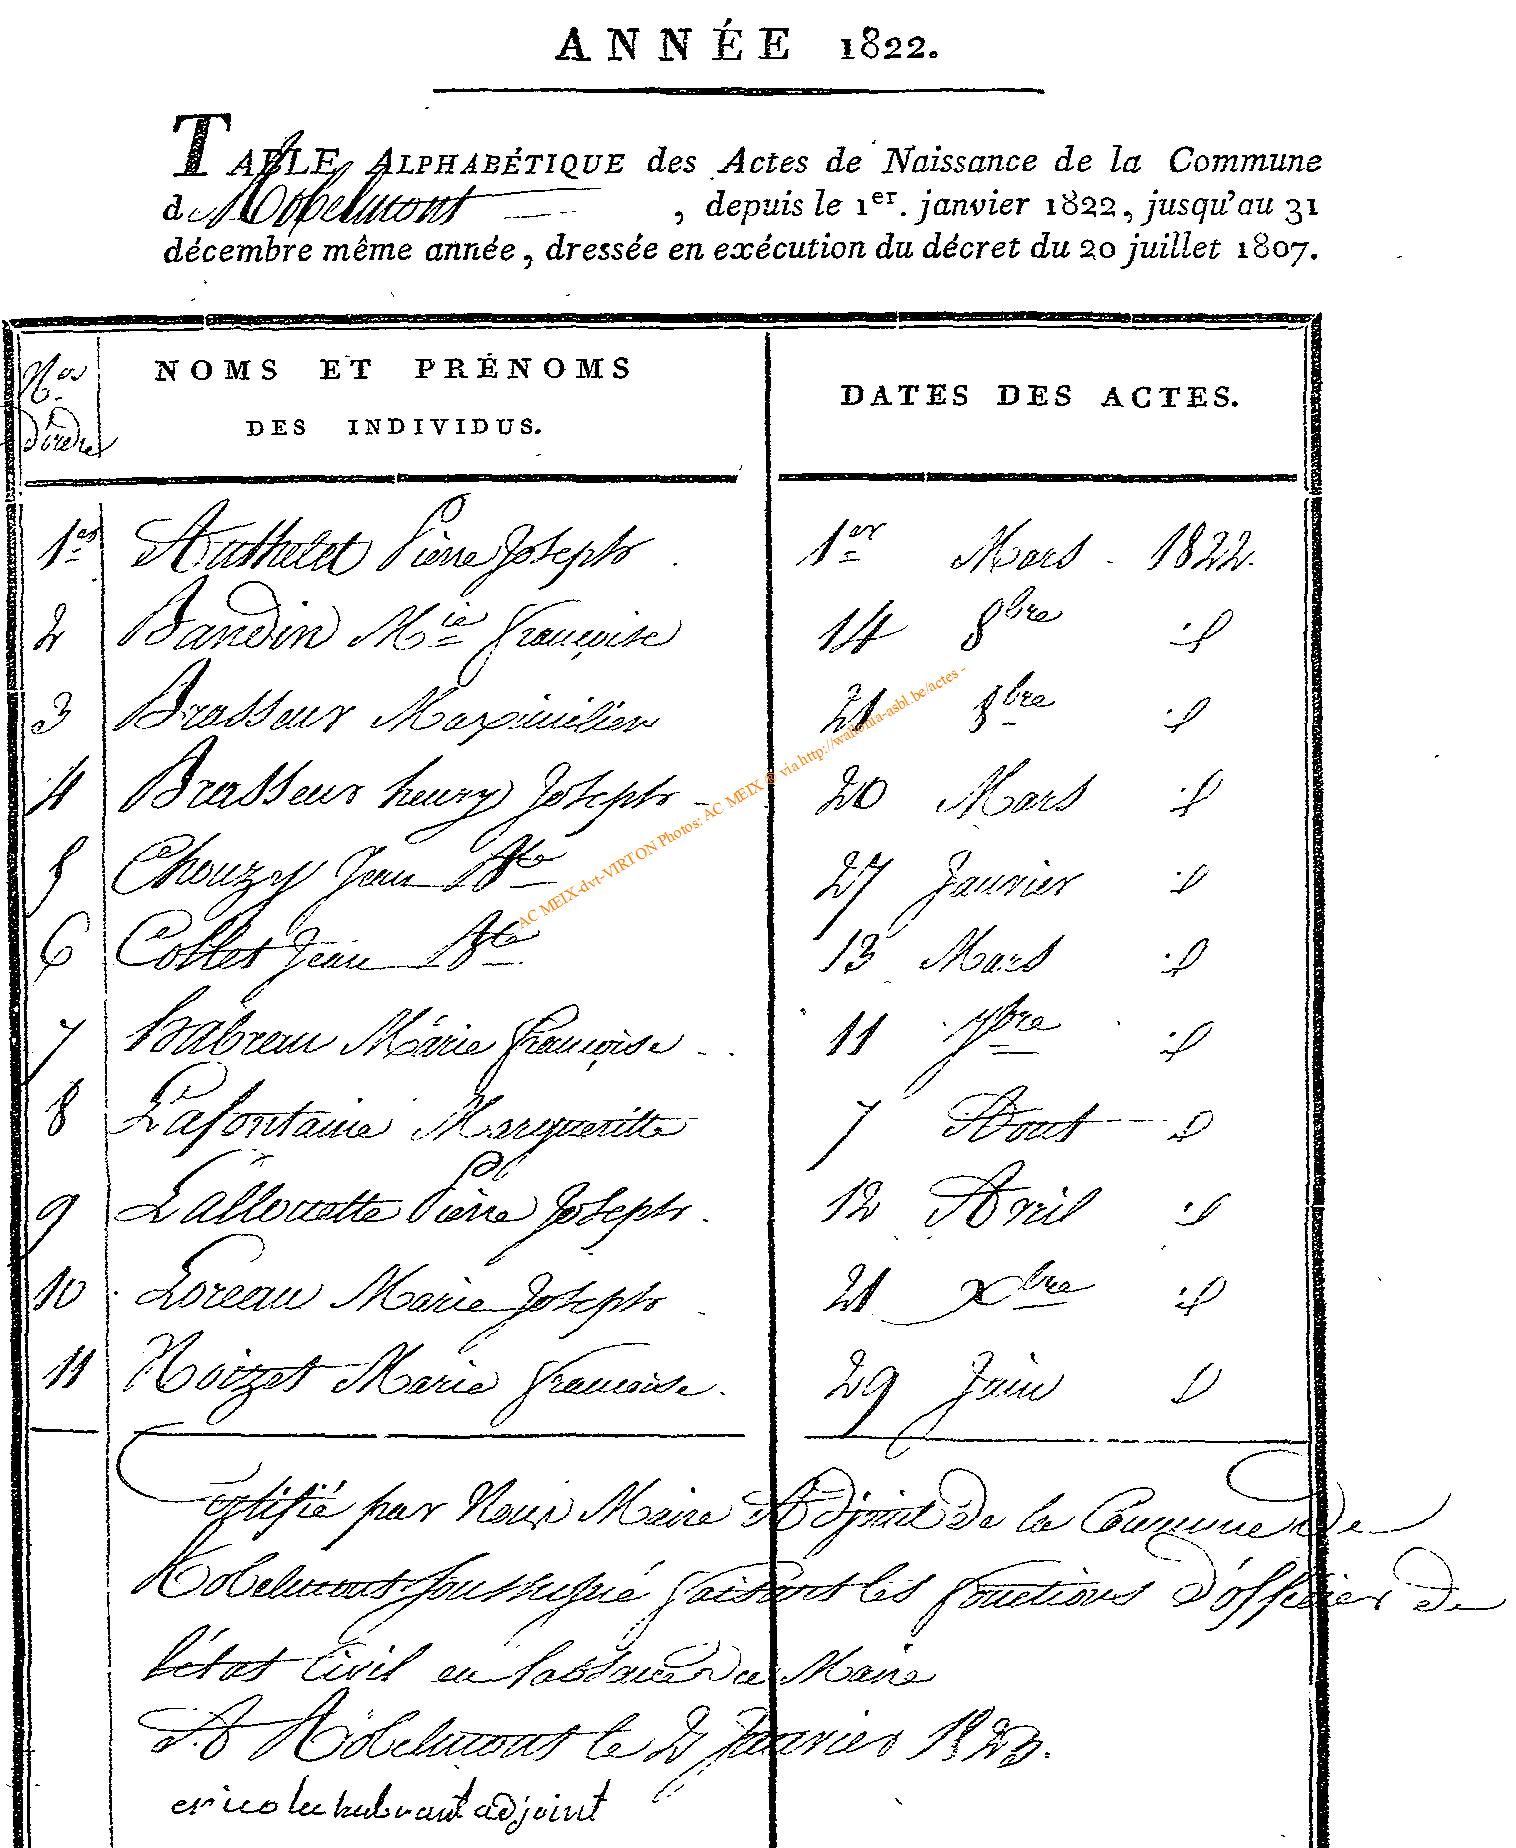 ANNÉE 1822.
TABLE ALPHABÉTIQUE des Actes de Naissance de la Commune
d Robelmont , depuis le 1er. janvier 1822, jusqu'au 31
décembre même année, dressée en exécution du décret du 20 juillet 1807.
Nos d'ordre
NOMS ET PRÉNOMS DES INDIVIDUS.
DATES DES ACTES.
1er Authelet Pierre Joseph 1er Mars 1822.
2 Baudin Mie françoise 14 8bre id
3 Brasseur Maximilien 21 8bre id
4 Brasseur henry Joseph 20 Mars id
5 Chouzy Jean Bte 27 Janvier id
6 Collet Jean Bte 13 Mars id
7 habrau Marie françoise 11 7bre id
8 Lafontaine Margueritte 7 Aout id
9 Lallouette Pierre Joseph 12 Avril id
10 Loreau Marie Joseph 21 Xbre id
11 Noizet Marie francoise 29 Juin id
Certifié par Nous Maire Adjoint de la Commune de
Robelmont soussigné faisant les fonctions d'officier de
l'état Civil en l'absence du Maire
A Robelmont le 2 Janvier 1823.
adjoint
AC MEIX-dvt-VIRTON Photos: AC MEIX via http://wallonia-asbl.be/actes -